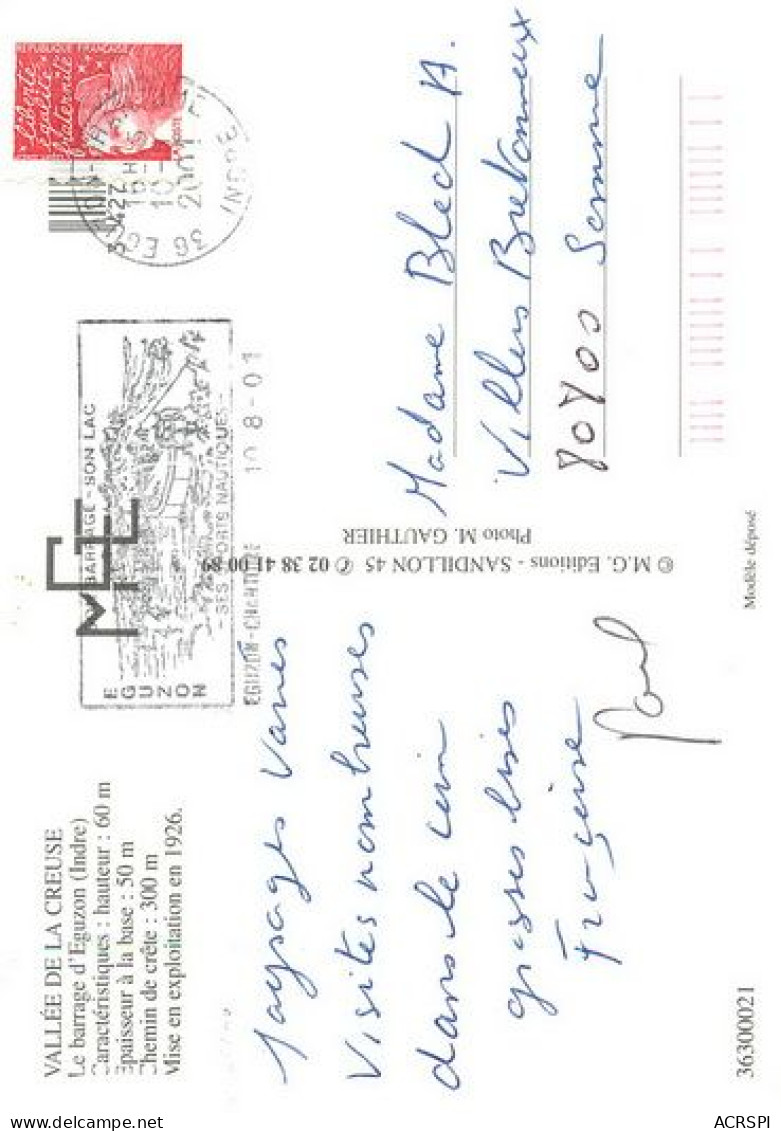 VALLÉE DE LA CREUSE
Le barrage d'Eguzon (Indre)
Caractéristiques : hauteur : 60 m
Epaisseur à la base : 50 m
Chemin de crête : 300 m
Mise en exploitation en 1926.
Paysages Variés
Visites nombreuses
dans le coin
grosses bises
Françoise
Paul
36300021
© M.G. Editions - SANDILLON 45 ✆ 02 38 41 00 89
Photo M. GAUTHIER
Modèle déposé
MGE
EGUZON
BARRAGE - SON LAC
- SES SPORTS NAUTIQUES -
EGUZON-CHANTOME 10-8-01
36 EGUZON-CHANTOME
INDRE
10-
2001
REPUBLIQUE FRANÇAISE
liberté
égalité
fraternité
Madame Bled A.
Villers Bretonneux
80800 Somme
ACRSPI